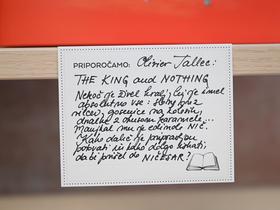 PRIPOROČAMO: Olivier Tallec:
THE KING and NOTHING
Nekoč je živel kralj, ki je imel
absolutno vse: slone brez
rilcev, gosenice na kolesih,
z okusom karamele...
Manjkal mu je edinole NIČ.
Kako daleč je pripravljen
potovati in kako dolgo iskati,
da bi prišel do NIČESAR?